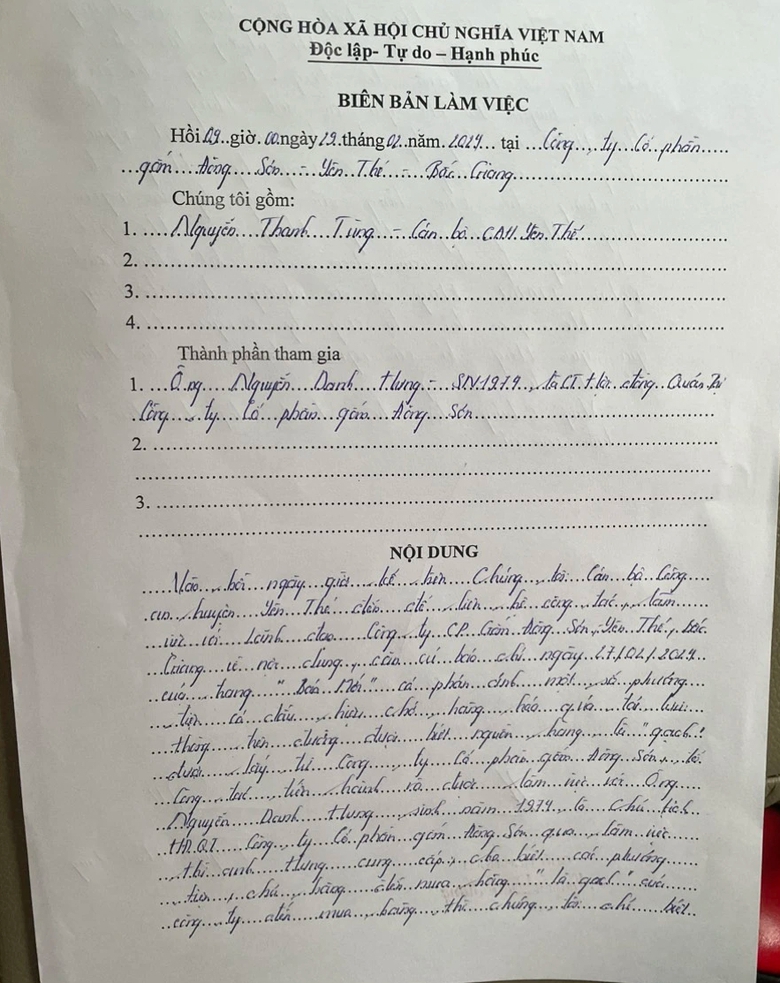 CỘNG HÒA XÃ HỘI CHỦ NGHĨA VIỆT NAM
Độc lập- Tự do – Hạnh phúc
BIÊN BẢN LÀM VIỆC
Hồi 09 giờ 00 ngày 29 tháng 02 năm 2024 tại Công ty Cổ phần
gốm Đông Sơn - Yên Thế - Bắc Giang
Chúng tôi gồm:
1. Nguyễn Thanh Tùng - Cán bộ CAH Yên Thế
2.
3.
4.
Thành phần tham gia
1. Ông Nguyễn Danh Hưng - SN 1974, là CT hội đồng Quản Trị
Công ty Cổ phần gốm Đông Sơn
2.
3.
NỘI DUNG
Vào hồi ngày giờ kể trên Chúng tôi Cán bộ Công
an huyện Yên Thế đến để liên hệ công tác, làm
việc với Lãnh đạo Công ty CP Gốm Đông Sơn, Yên Thế, Bắc
Giang về nội dung, căn cứ báo chí ngày 27/02/2024
của trang "Báo Mới" có phản ánh một số phương
tiện có dấu hiệu chở hàng hóa quá tải lưu
thông trên đường được biết nguồn hàng là "gạch"
được lấy từ Công ty Cổ phần gốm Đông Sơn, tổ
công tác tiến hành và được làm việc với Ông
Nguyễn Danh Hưng, sinh năm 1974 là Chủ tịch
HĐQT Công ty Cổ phần gốm Đông Sơn qua làm việc
thì anh Hưng cung cấp, cho biết các phương
tiện chở hàng đến mua hàng "là gạch" của
công ty đến mua hàng thì chúng tôi chỉ biết